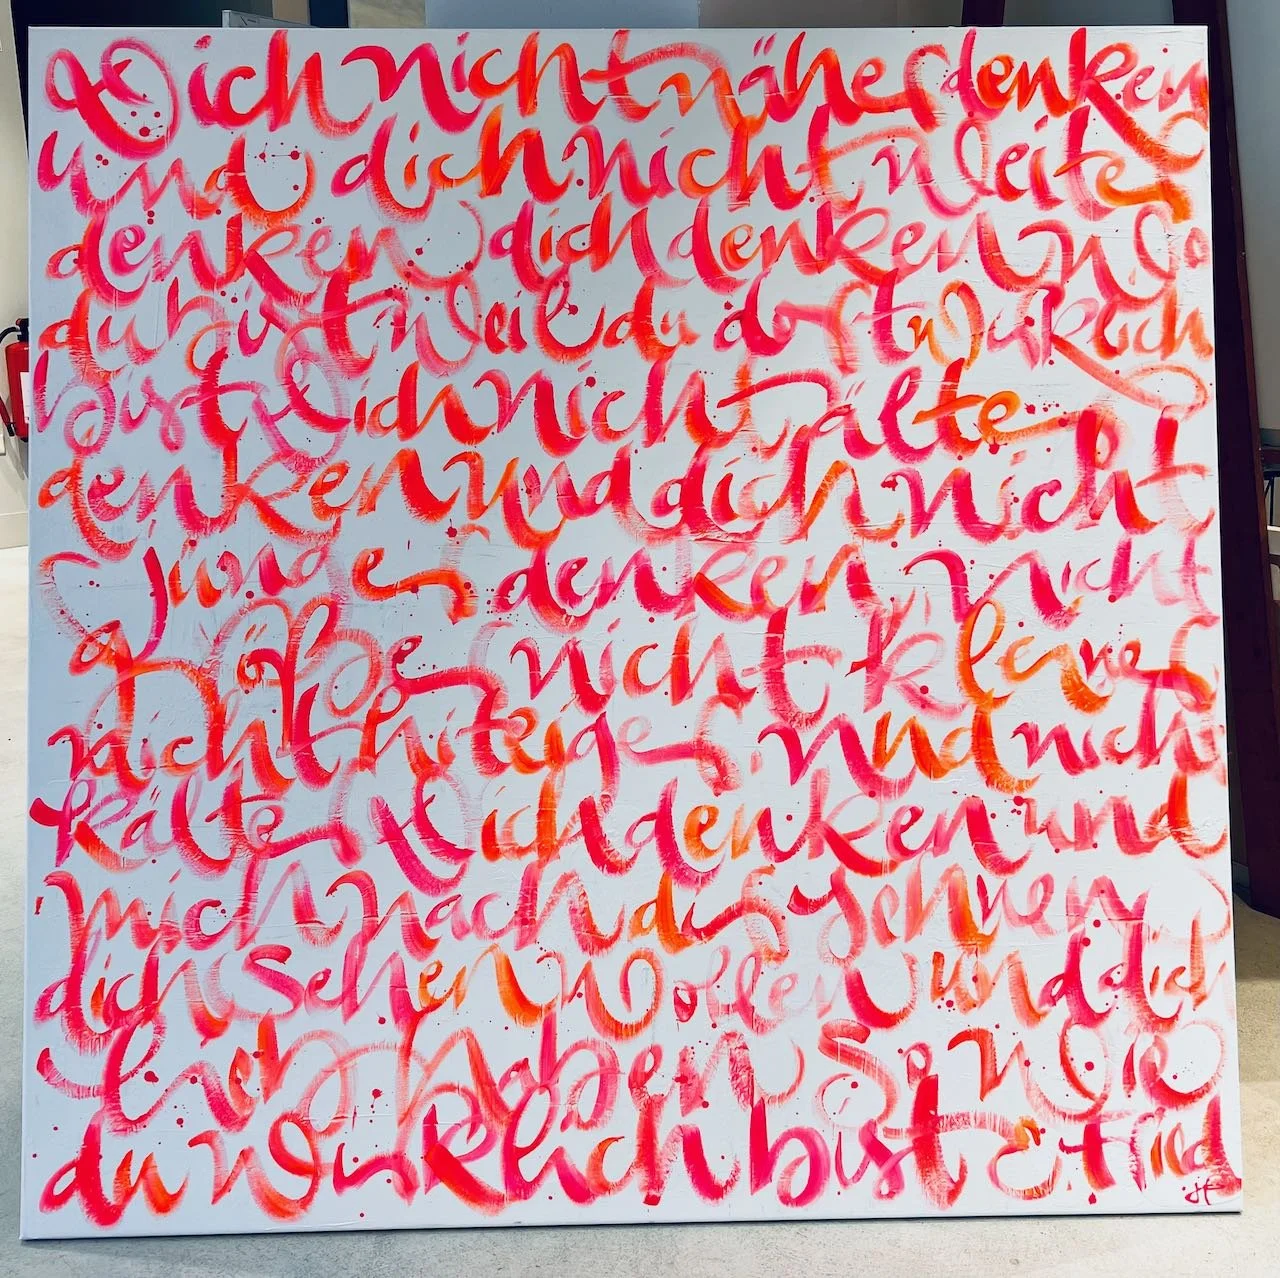 Dich nicht näher denken
und dich nicht weiter
denken dich denken wo
du bist weil du dort wirklich
bist Dich nicht älter
denken und dich nicht
jünger denken nicht
größer nicht kleiner
nicht hitziger und nicht
kälter Dich denken und
mich nach dir sehnen
dich sehen wollen und dich
liebhaben so wie
du wirklich bist E. Fried